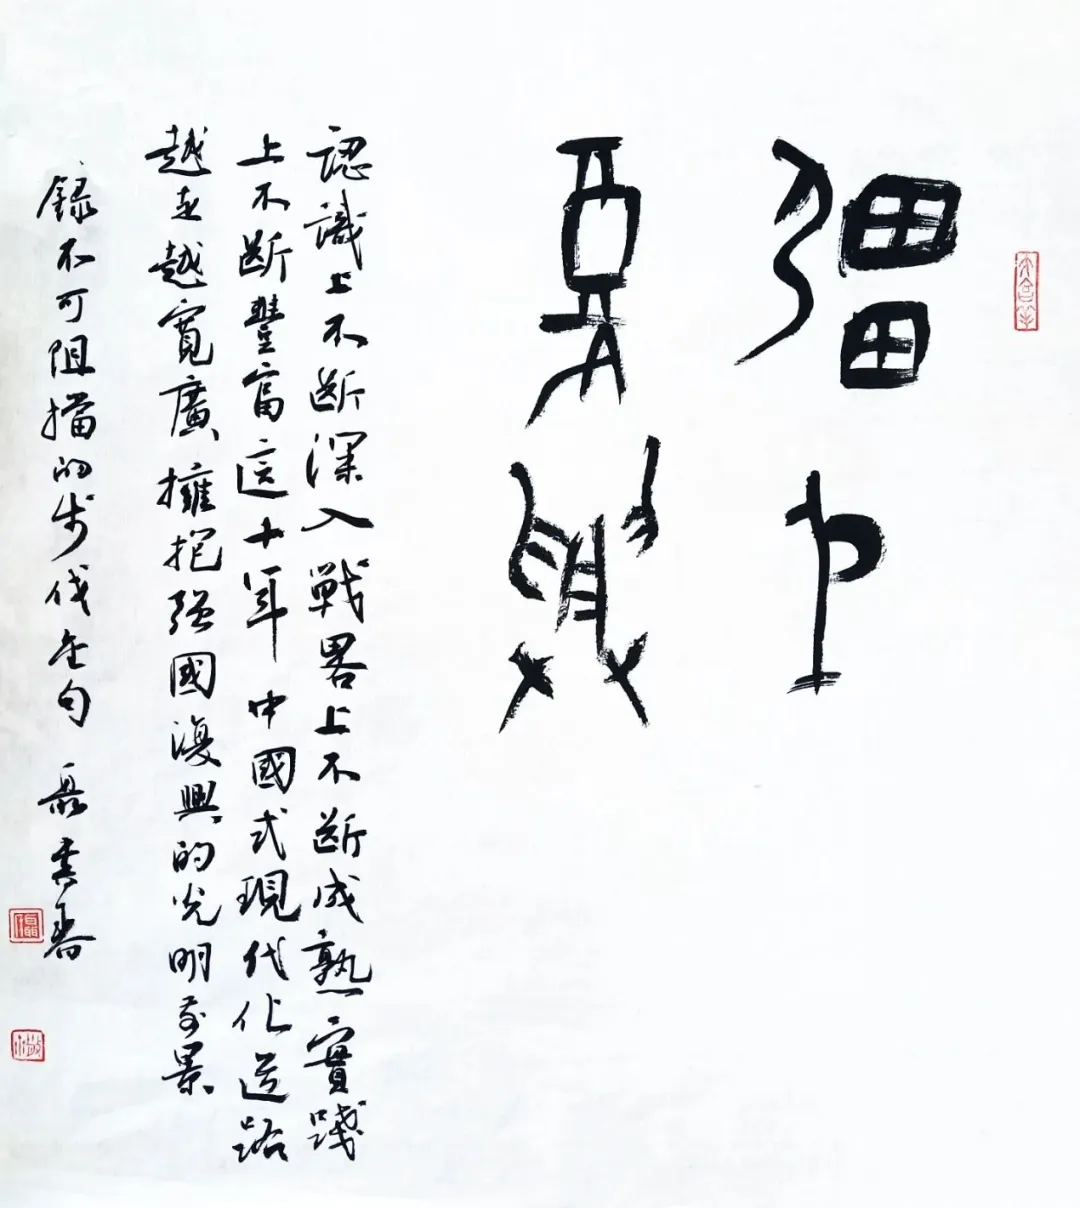 彊或
复興
認識上不斷深入戰畧上不斷成熟實踐
上不斷豐富這十年中國式現代化道路
越走越寬廣擁抱强國復興的光明前景
錄不可阻擋的步伐金句 聶